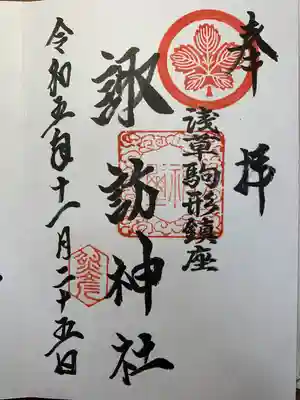 奉拝
浅草駒形鎮座
諏訪神社
令和五年十一月二十五日